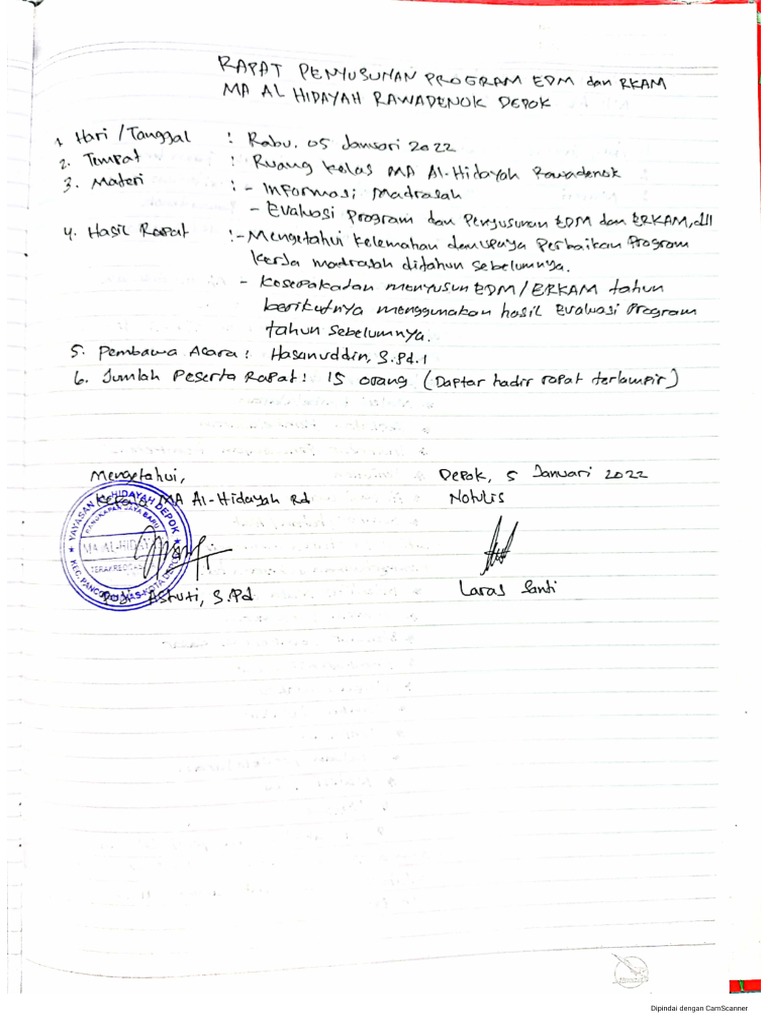 RAPAT PENYUSUNAN PROGRAM EDM dan RKAM
MA AL HIDAYAH RAWADENOK DEPOK
1. Hari / Tanggal : Rabu, 05 Januari 2022
2. Tempat : Ruang Kelas MA Al-Hidayah Rawadenok
3. Materi : - Informasi Madrasah
- Evaluasi Program dan Penyusunan EDM dan ERKAM, dll
4. Hasil Rapat : - Mengetahui kelemahan dan upaya Perbaikan Program
kerja madrasah ditahun sebelumnya.
- Kesepakatan menyusun EDM / ERKAM tahun
berikutnya menggunakan hasil Evaluasi Program
tahun sebelumnya.
5. Pembawa Acara : Hasanuddin, S.Pd.I
6. Jumlah Peserta Rapat : 15 orang (Daptar hadir rapat terlampir)
Mengetahui, Depok, 5 Januari 2022
Kepala MA Al-Hidayah Rd Notulis
YAYASAN AL HIDAYAH DEPOK
MA AL-HIDAYAH
KEC. PANCORAN MAS-KOTA DEPOK
Astuti, S.Pd Laras Santi
Dipindai dengan CamScanner